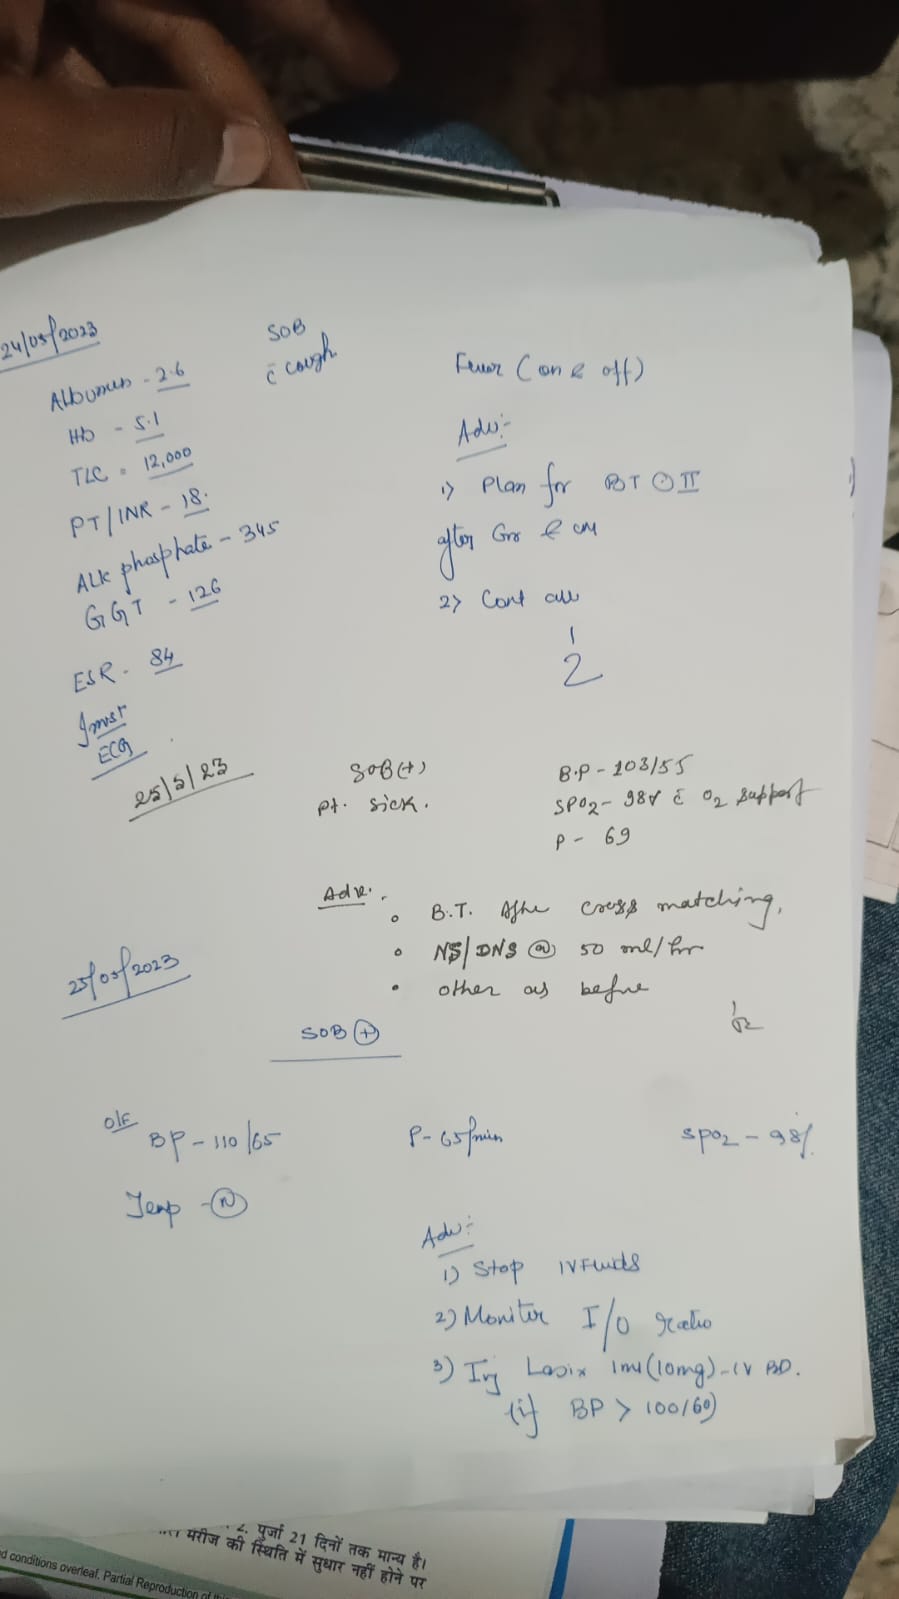 24/05/2023
SOB
c̄ cough
Fever (on & off)
Albumin - 2.6
Hb - 5.1
TLC - 12,000
PT/INR - 18.
ALK phosphate - 345
GGT - 126
ESR - 84
Invst
ECG
Adv:-
1) Plan for BT ⊙ II
after Gr & CM
2) Cont all
25/5/23
SOB (+)
Pt. sick.
B.P - 103/55
SPO2 - 98% c̄ O2 support
P - 69
Adv.
• B.T. After cross matching,
• NS/DNS @ 50 ml/hr
• other as before
25/05/2023
SOB ⊕
O/E
BP - 110/65
P - 65/min
SpO2 - 98%.
Temp - (N)
Adv:-
1) Stop IV Fluids
2) Monitor I/O ratio
3) Inj Lasix 1ml (10mg) - IV BD.
(if BP > 100/60)
2. पुर्जा 21 दिनों तक मान्य है।
मरीज की स्थिति में सुधार नहीं होने पर
d conditions overleaf. Partial Reproduction of